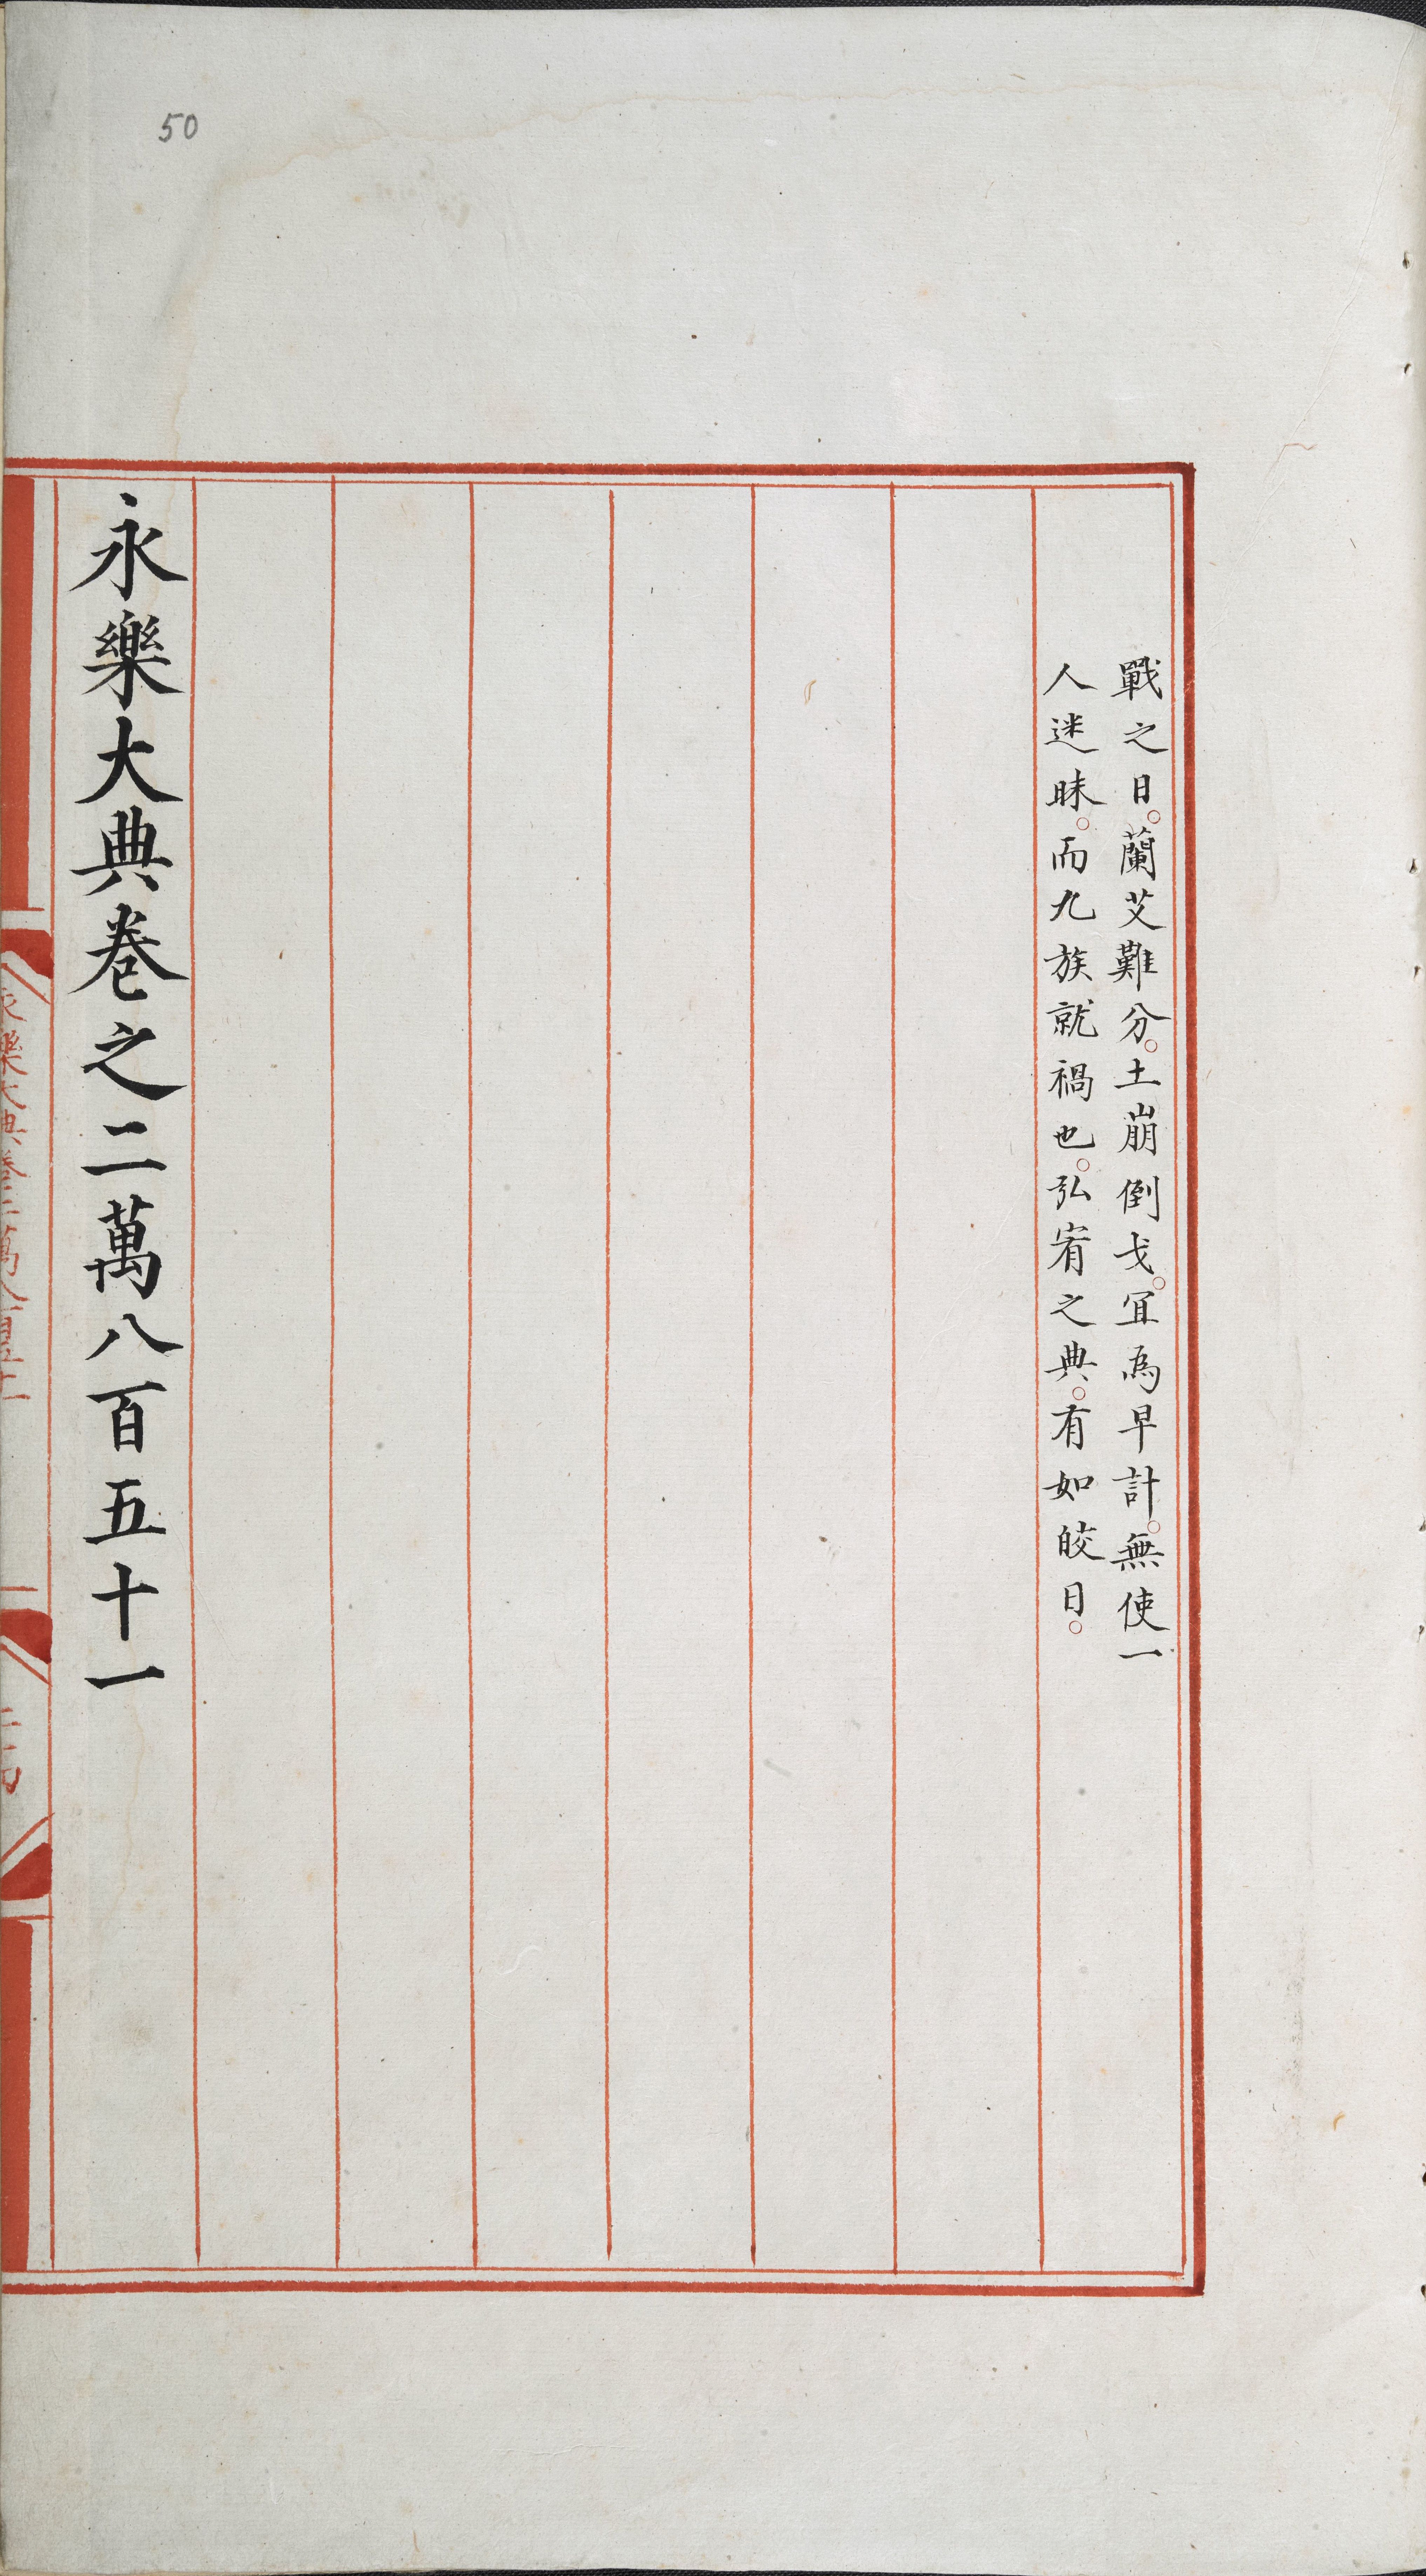 50
戰之日。蘭艾難分。土崩倒戈。冝為早計。無使一
人迷昧。而九族就禍也。弘宥之典。有如皎日。
永樂大典卷之二萬八百五十一
永樂大典卷二萬八百五十一